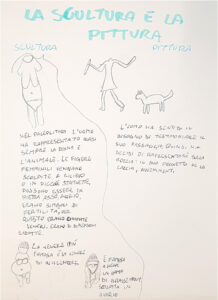 LA SCULTURA E LA
PITTURA
SCULTURA
PITTURA
NEL PALEOLITICO L'UOMO
HA RAPPRESENTATO QUASI
SEMPRE LA DONNA E
L'ANIMALE. LE FIGURE
FEMMINILI VENIVANO
SCOLPITE A RILIEVO
O IN PICCOLE STATUETTE,
POSSONO ESSERE IN
PIETRA, OSSO, AVORIO,
ERANO SIMBOLI DI
FERTILITÀ,
QUESTE ERANO
VENERI,
L'UOMO HA SENTITO IL
BISOGNO DI TESTIMONIARE IL
SUO PASSAGGIO, QUINDI, HA
DECISO DI RAPPRESENTARE SULLA
ROCCIA
CACCIA, MOVIMENTI.
LA VENERE PIÙ
FAMOSA È LA VENERE
DI WILLENDORF.
È FAMOSA
ANCHE
DI BRASSEMPOUY
SCOLPITA IN
AVORIO